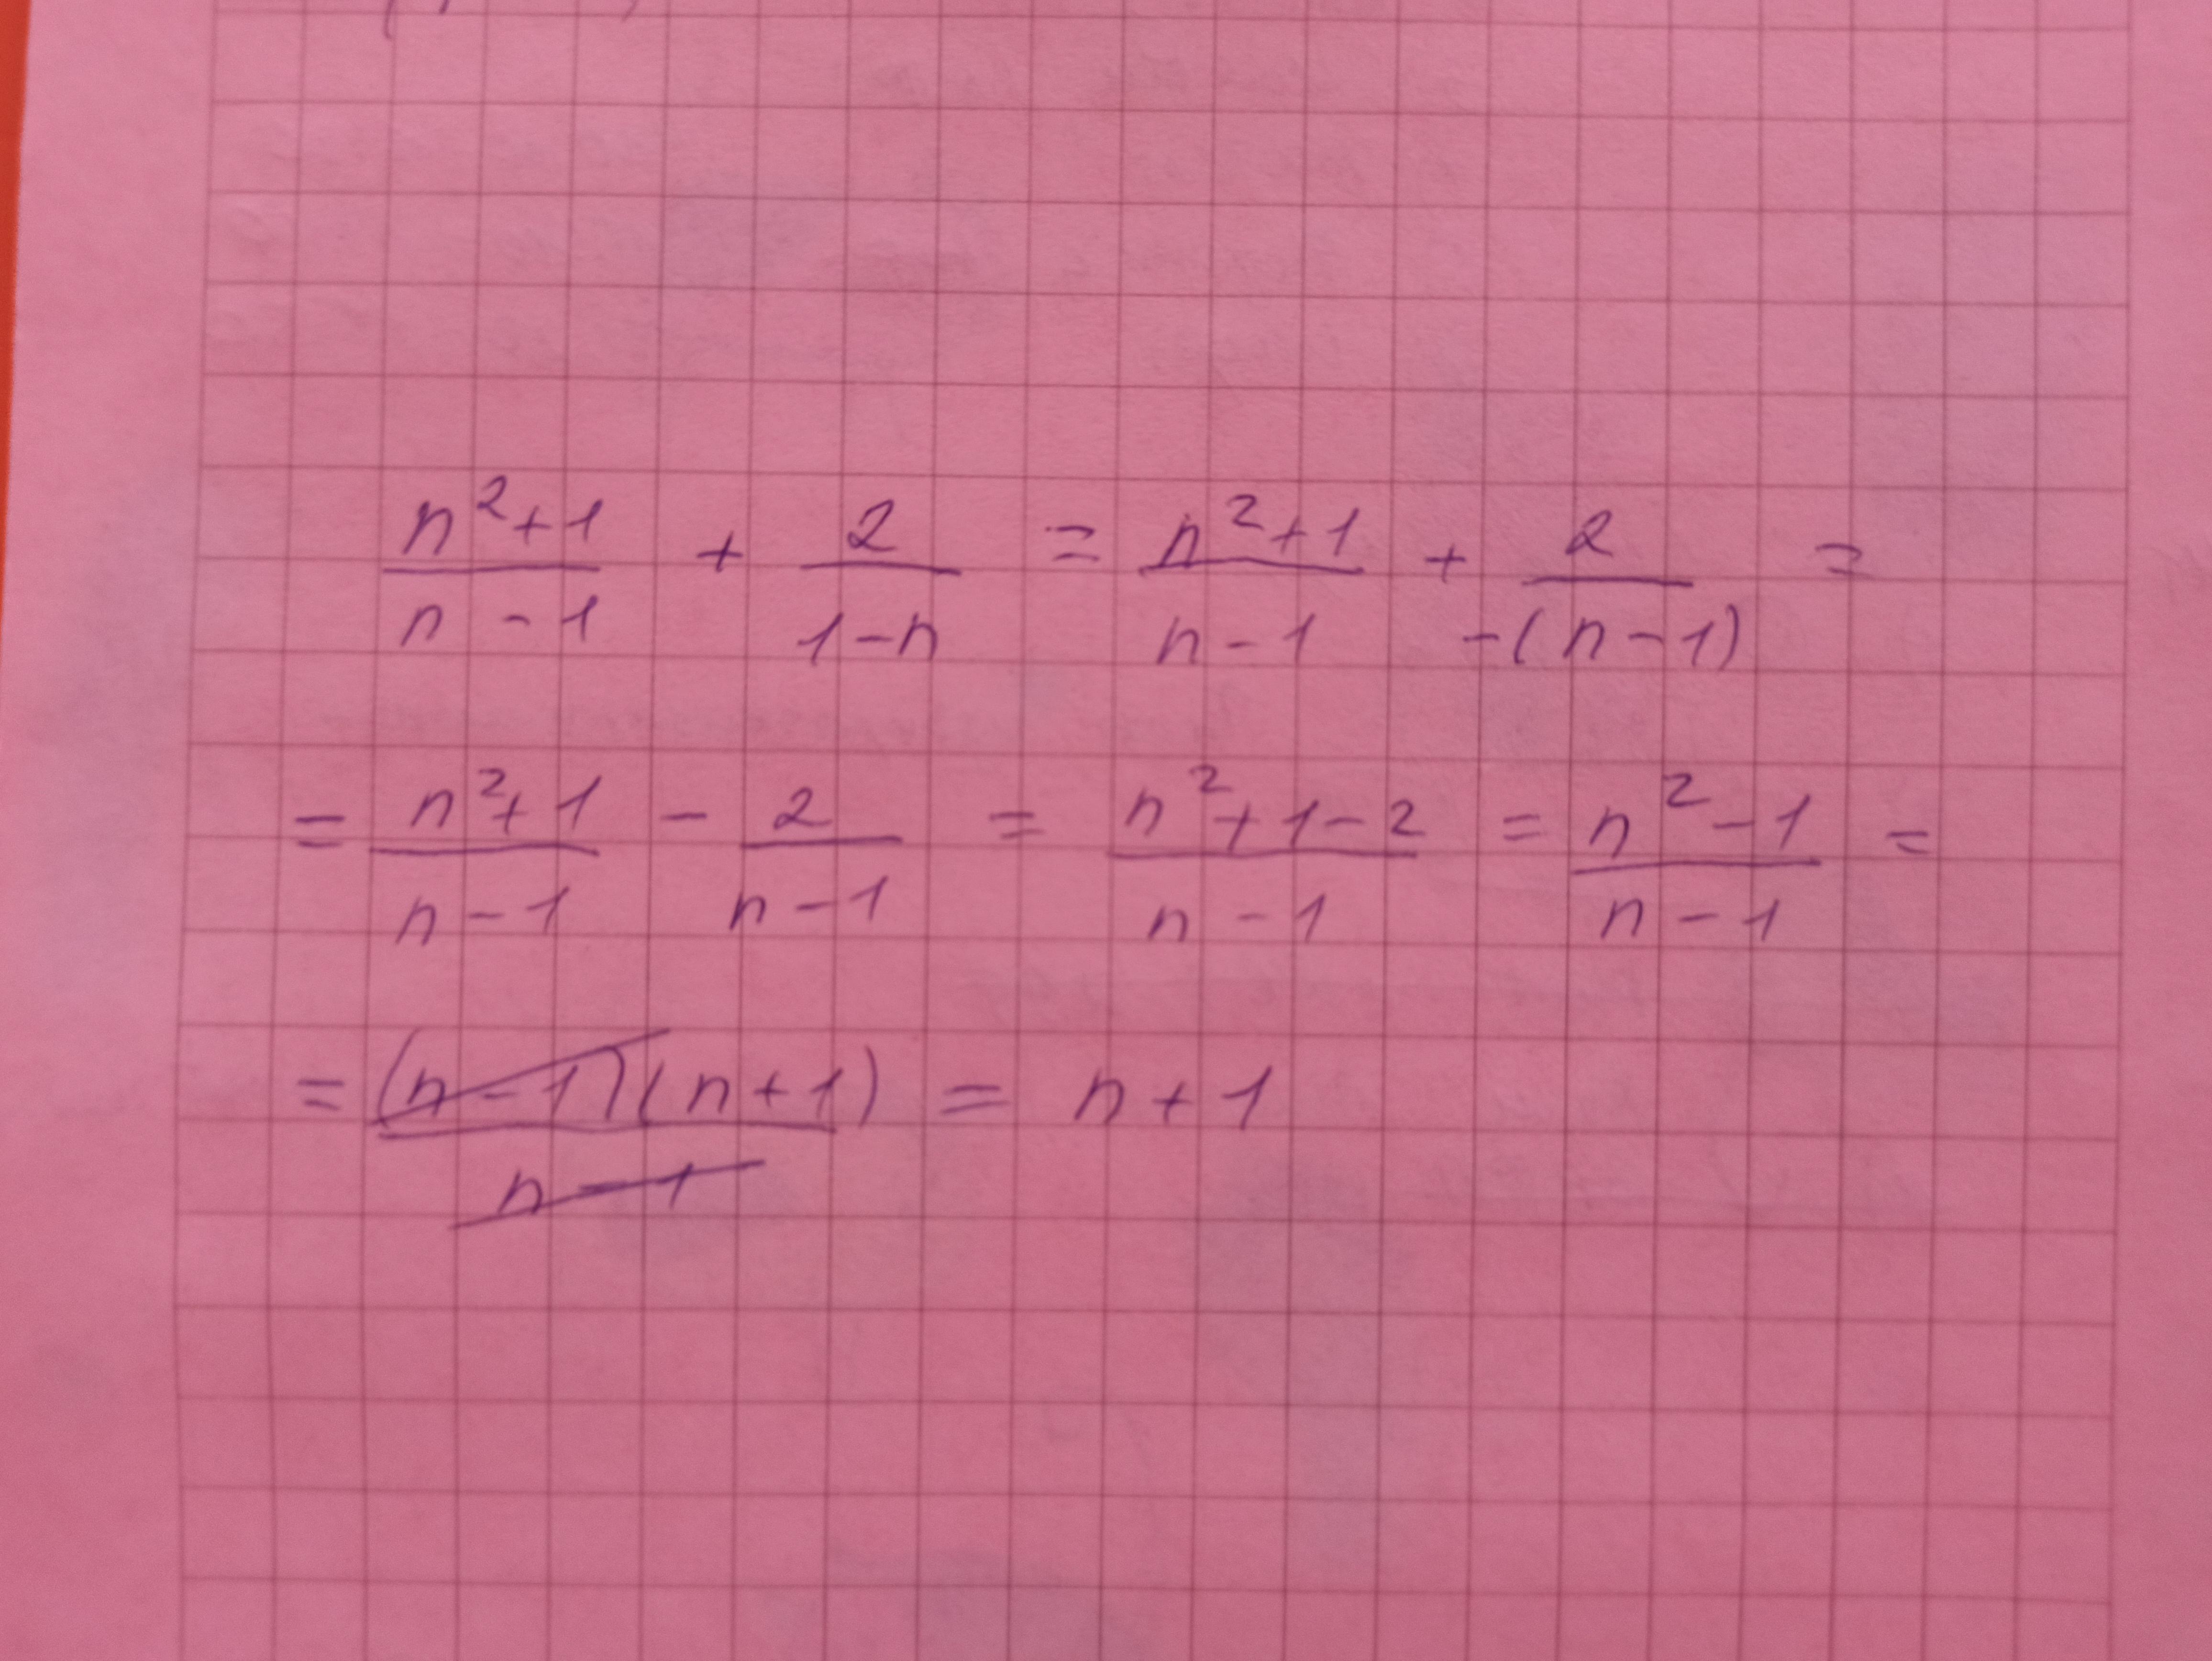 (n²+1)/(n-1) + 2/(1-n) = (n²+1)/(n-1) + 2/(-(n-1)) =
= (n²+1)/(n-1) - 2/(n-1) = (n²+1-2)/(n-1) = (n²-1)/(n-1) =
= (n-1)(n+1)/(n-1) = n+1